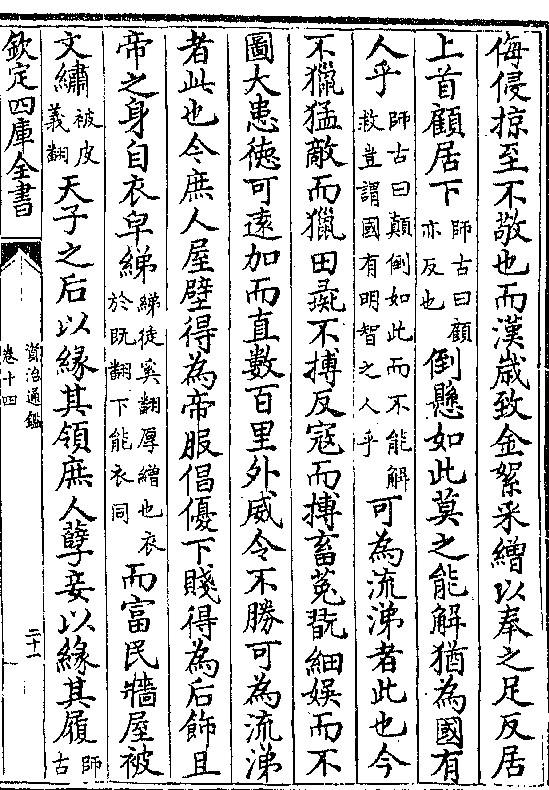 侮侵掠至不敬也而漢歳致金絮采繒以奉之足反居
上首顧居下師古曰顧亦反也倒懸如此莫之能解猶為國有
人乎師古曰顛倒如此而不能解救豈謂國有明智之人乎可為流涕者此也今
不獵猛敵而獵田彘不搏反寇而搏畜菟翫細娯而不
圖大患徳可逺加而直數百里外威令不勝可為流涕
者此也今庶人屋壁得為帝服倡優下賤得為后飾且
帝之身自衣皁綈綈徒奚翻厚繒也衣於既翻下能衣同而富民牆屋被
文繡被皮義翻天子之后以縁其領庶人孽妾以縁其履師古
欽定四庫全書
資治通鑑
卷十四
二十一